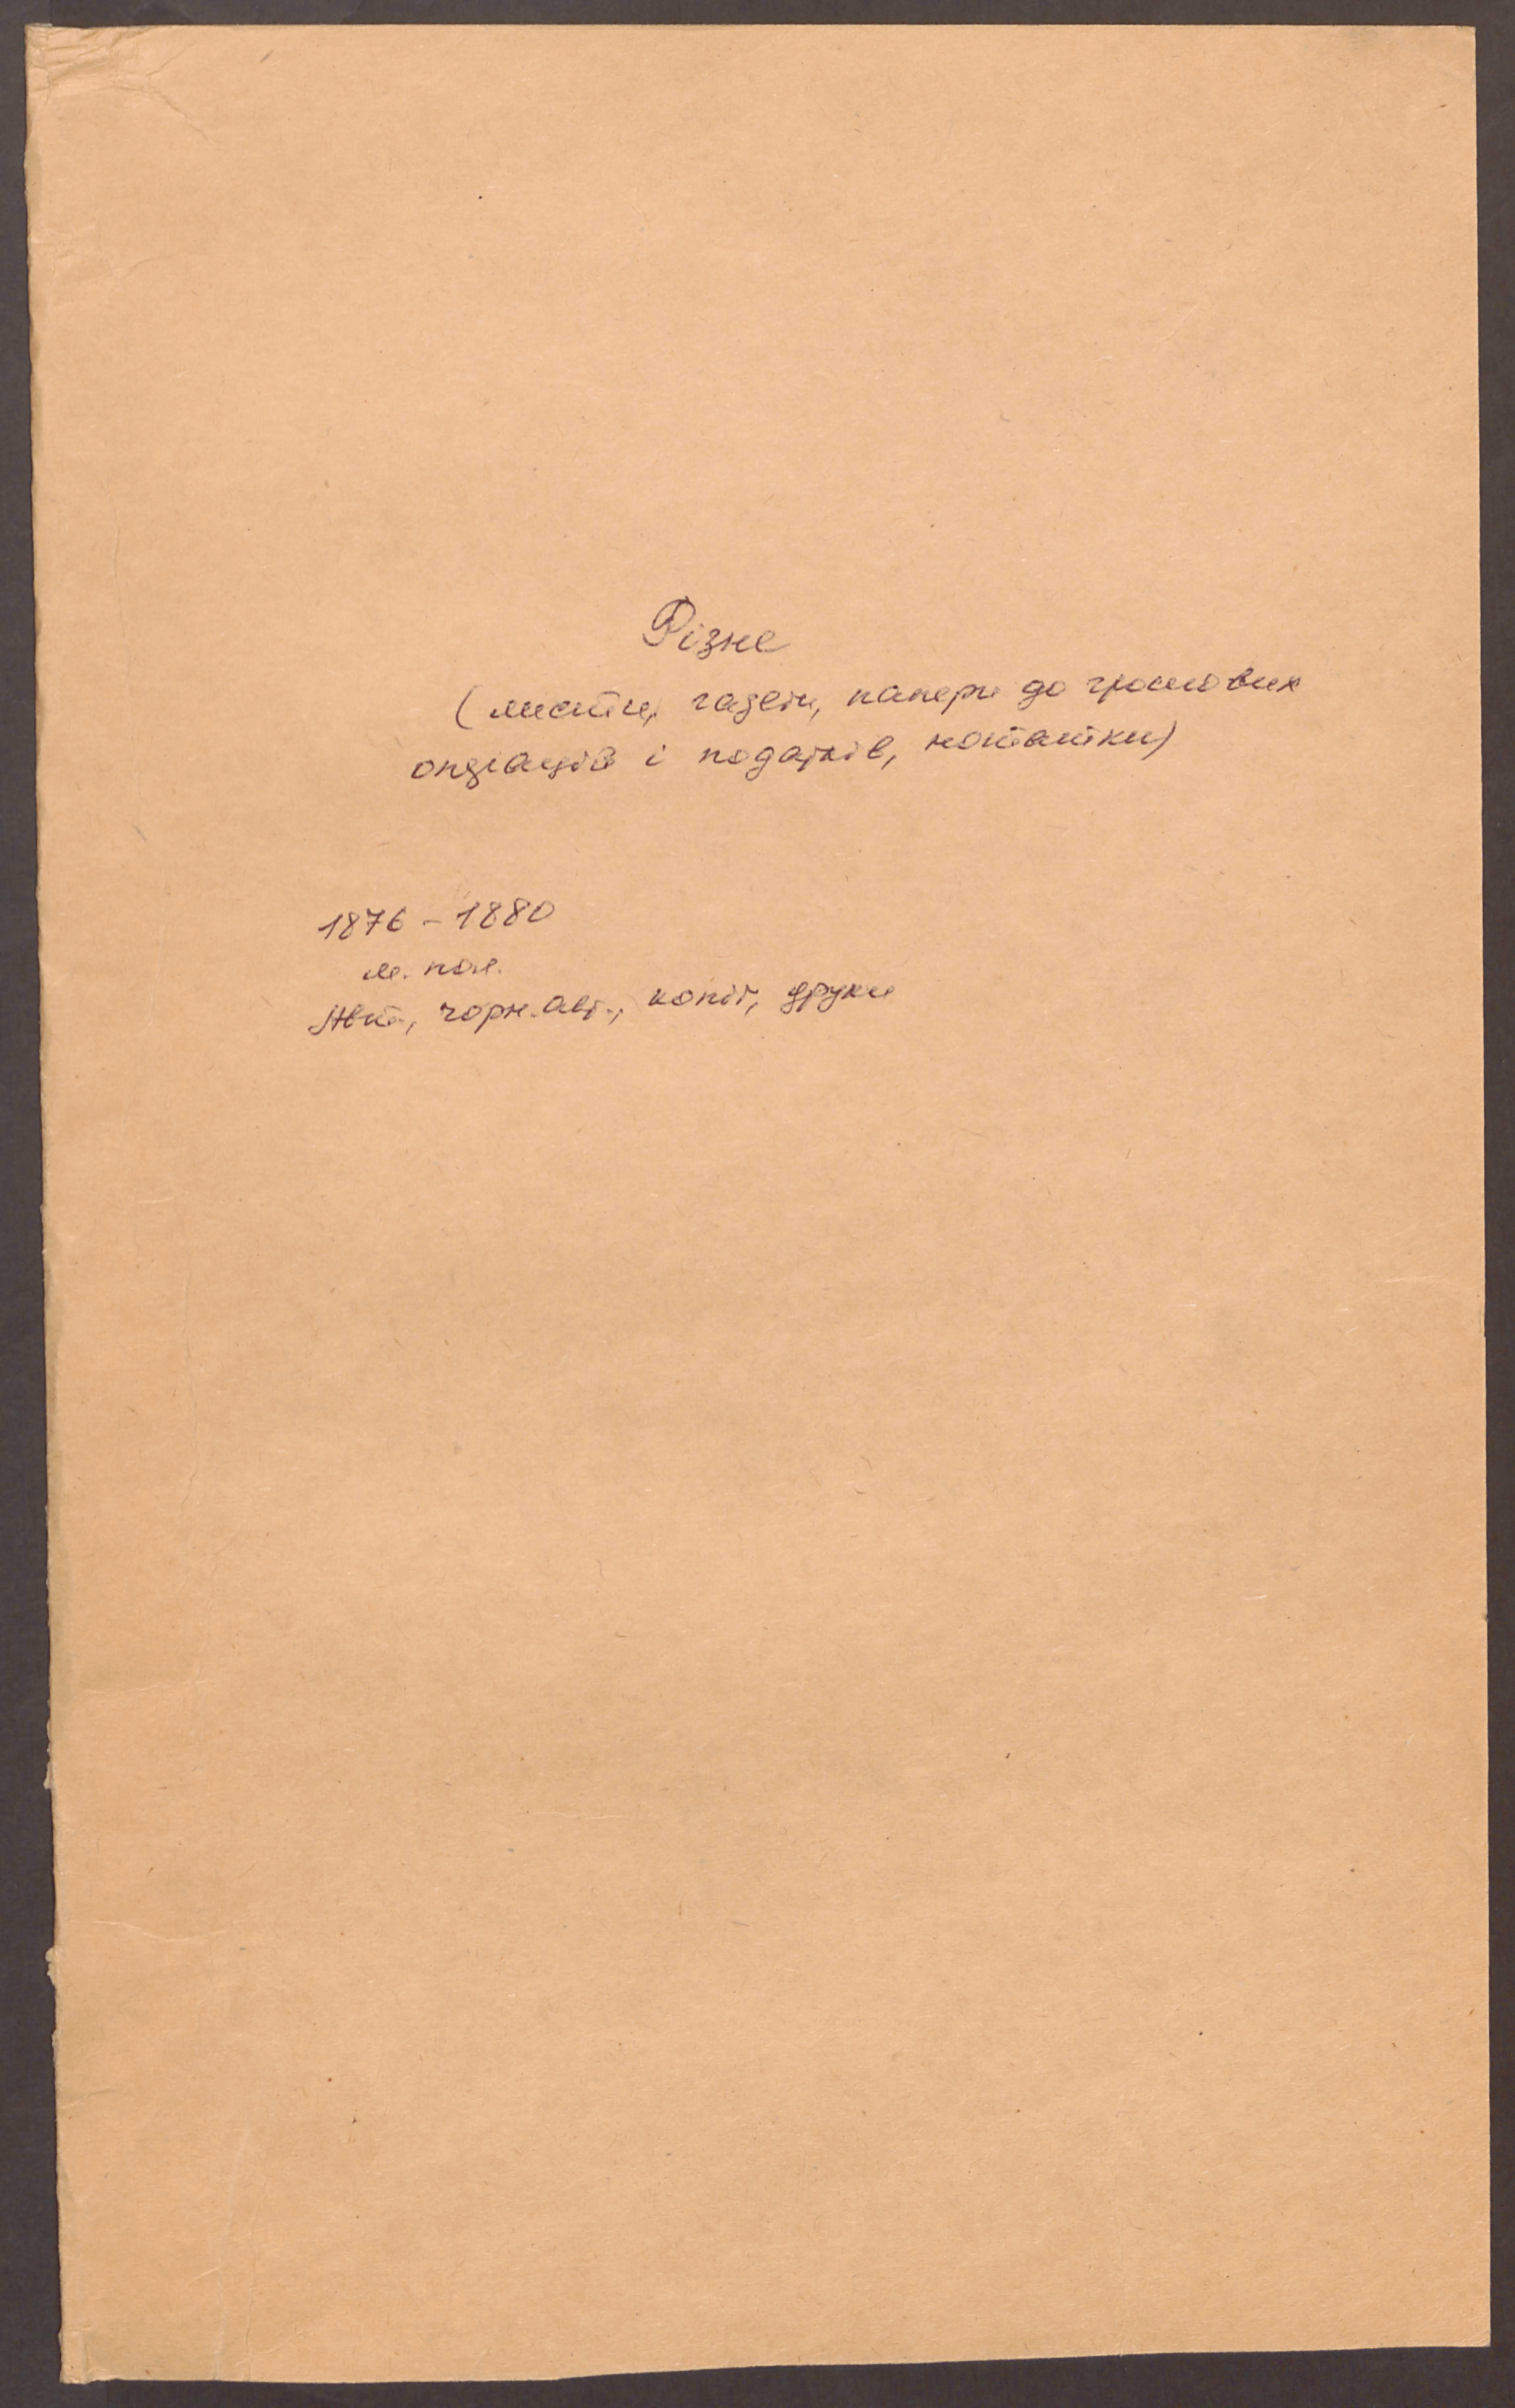 Різне
(листи, газети, папери до грошових
операцій і податків, нотатки)
1876 – 1880
м. пол.
Авт., чорн. авт., копії, друки